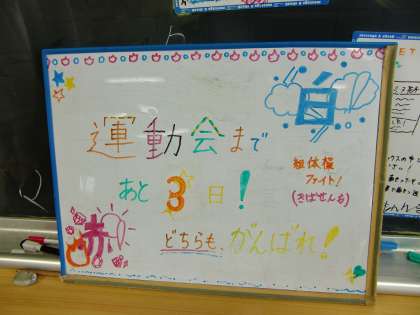 白
運動会まで
あと3日!
組体操
ファイト!
(きばせんも)
赤
どちらも、がんばれ!